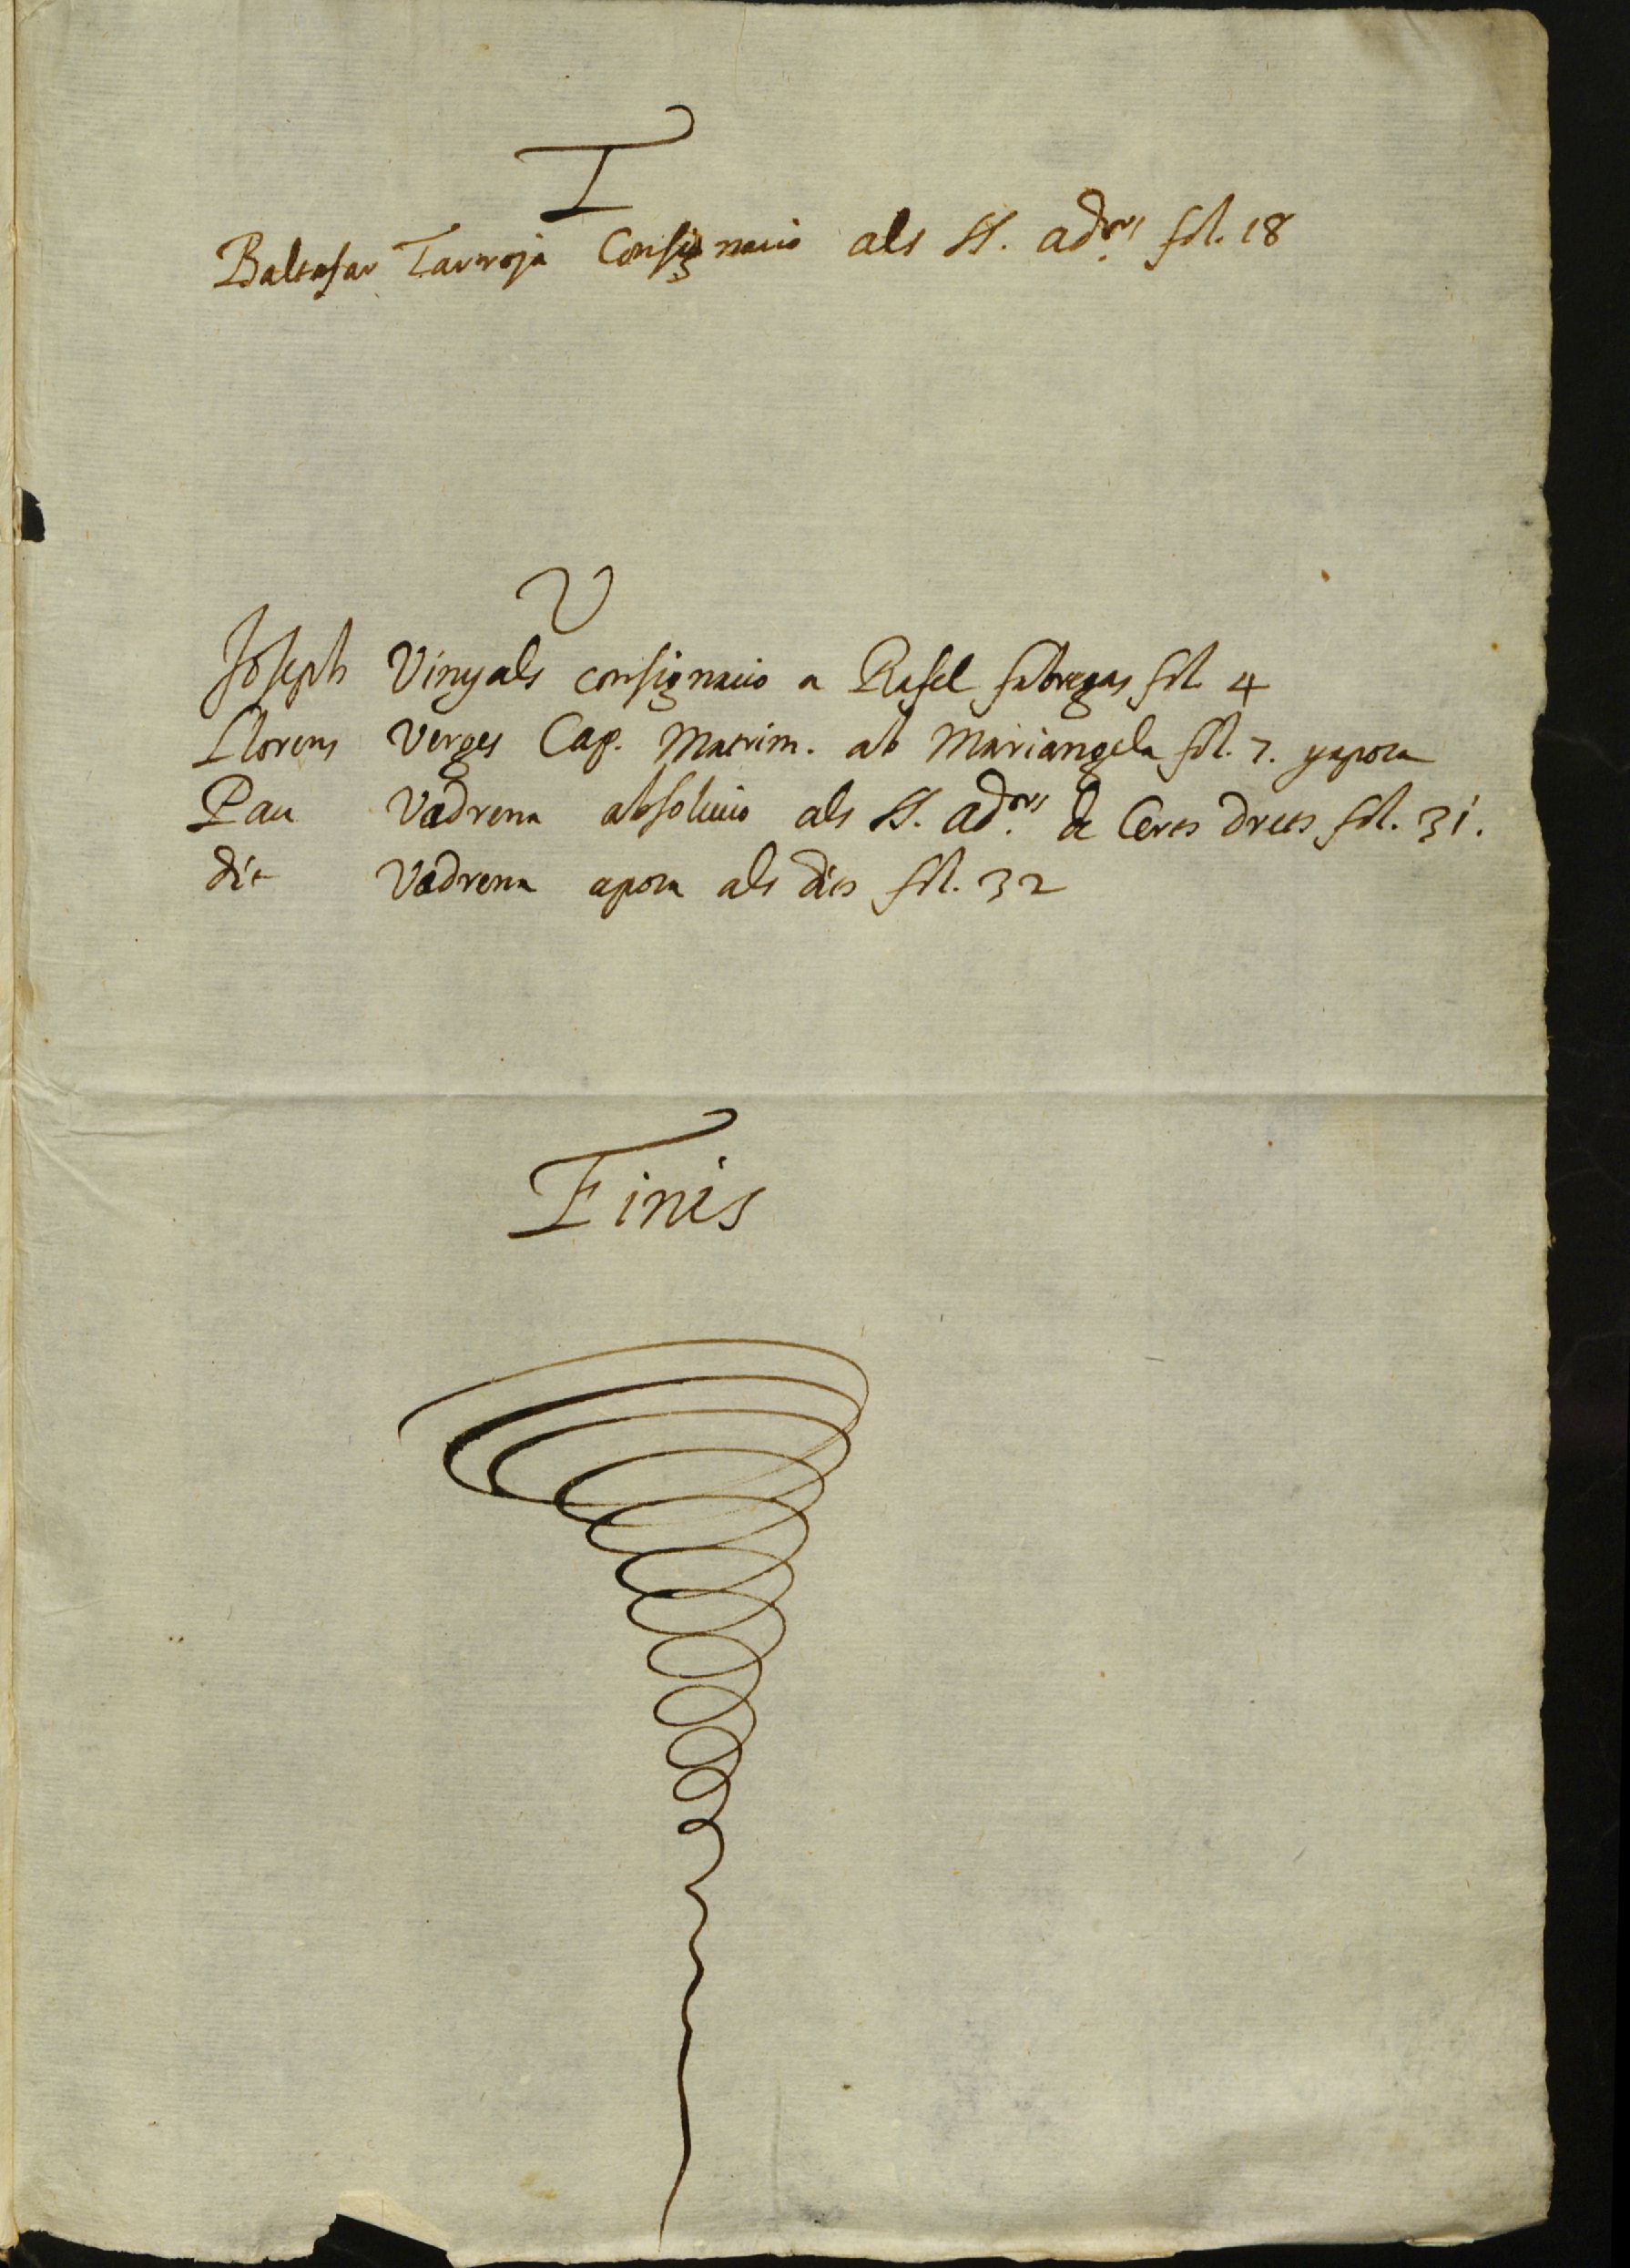 T
Baltasar Tarroja Consignacio als SS. ad.ors fol. 18
V
Joseph Vinyals consignacio a Rafel fabregas fol. 4
Llorens Verges Cap. Matrim. ab Mariangela fol. 7. y apoca
Pau Vadrena absolucio als SS. ad.ors de Certs drets fol. 31.
dit Vadrena apoca als dits fol. 32
Finis